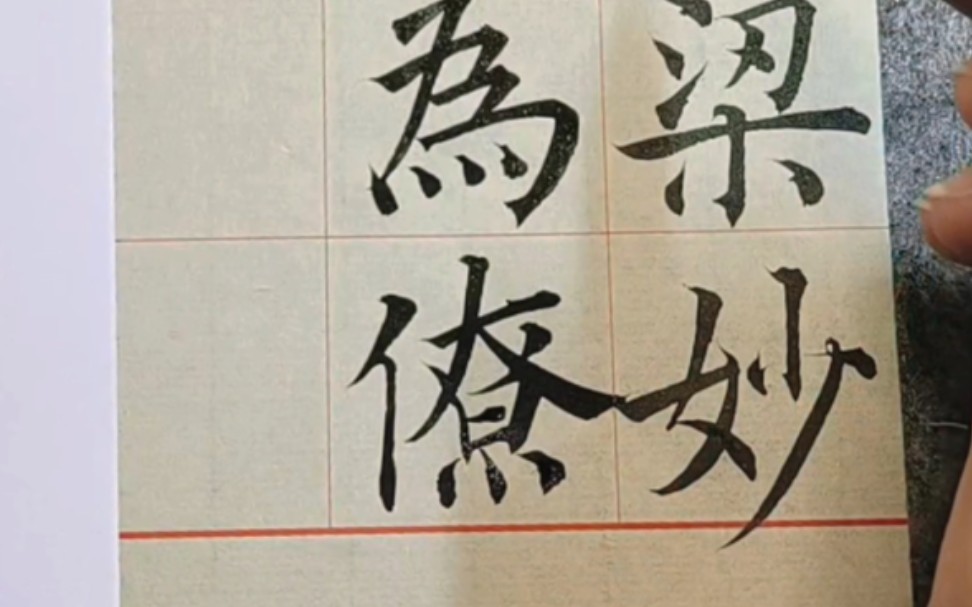 梁妙
為僚